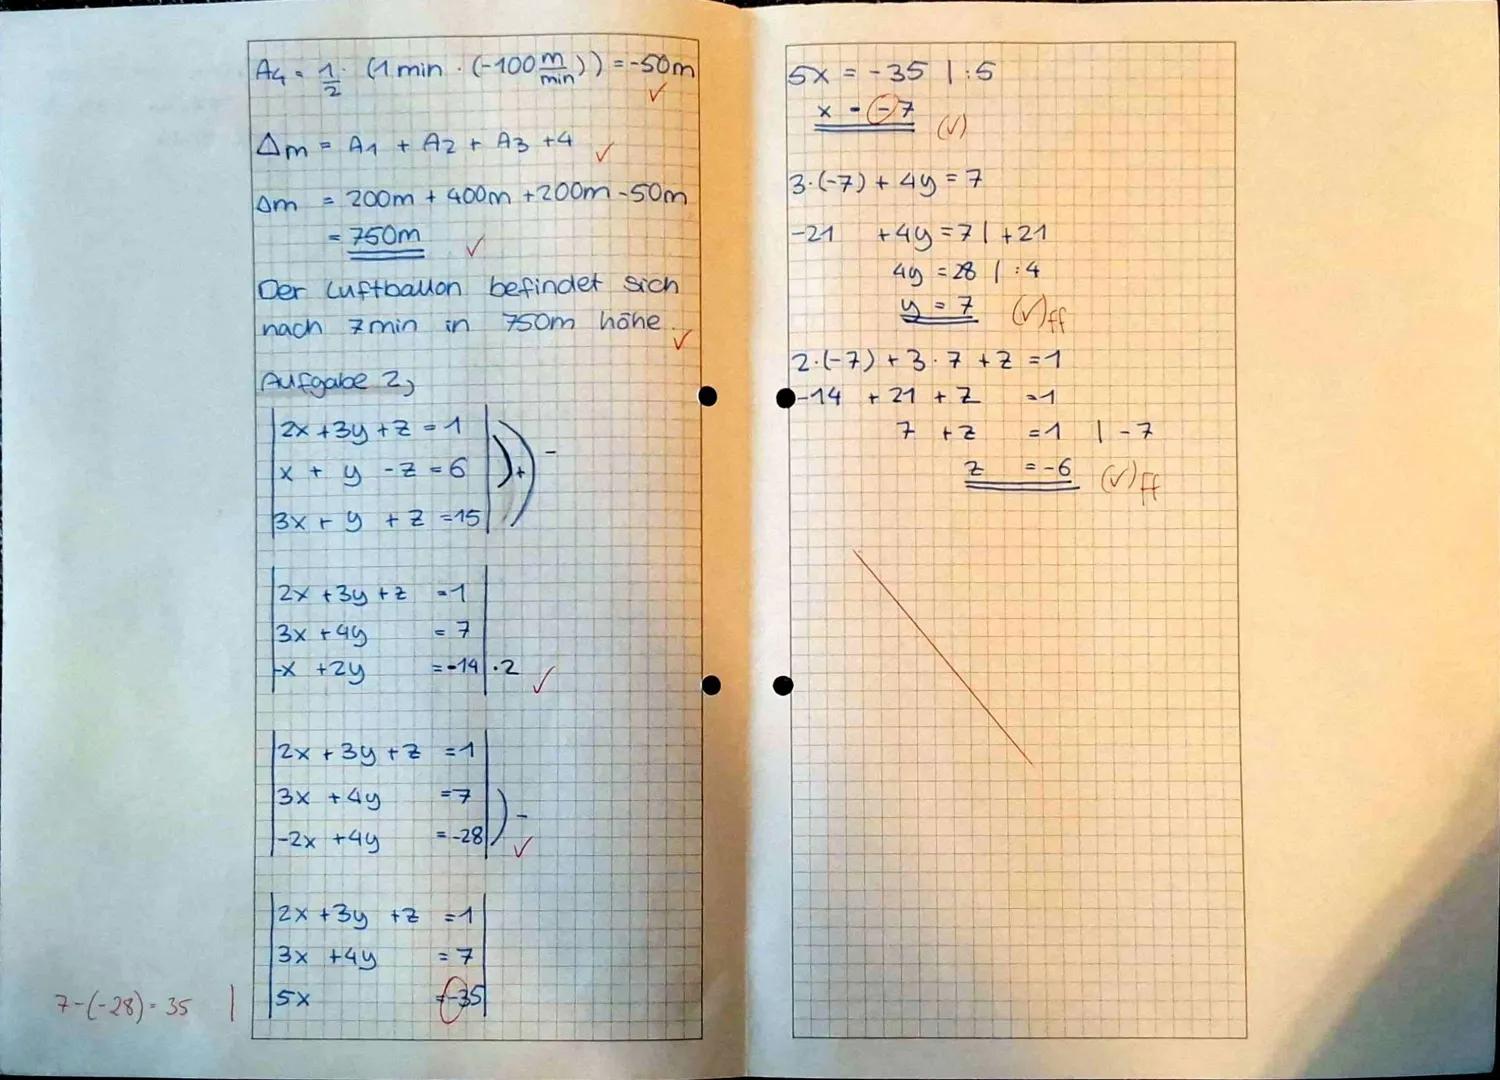 A4 = 1/2 · (1 min · (-100 m/min)) = -50m ✓
Δm = A1 + A2 + A3 +4 ✓
Δm = 200m + 400m + 200m - 50m
= 750m ✓
Der Luftballon befindet sich
nach 7min in 750m höhe. ✓
Aufgabe 2)
2x + 3y + z = 1
x + y - z = 6 + -
3x + y + z = 15
2x + 3y + z = 1
3x + 4y = 7
-x + 2y = -14 | ·2 ✓
2x + 3y + z = 1
3x + 4y = 7 -
-2x + 4y = -28 ✓
2x + 3y + z = 1
3x + 4y = 7
7-(-28) = 35 | 5x = -35
5x = -35 | :5
x = -7 (✓)
3·(-7) + 4y = 7
-21 + 4y = 7 | +21
4y = 28 | :4
y = 7 (✓)ff
2·(-7) + 3·7 + z = 1
-14 + 21 + z = 1
7 + z = 1 | -7
z = -6 (✓)ff